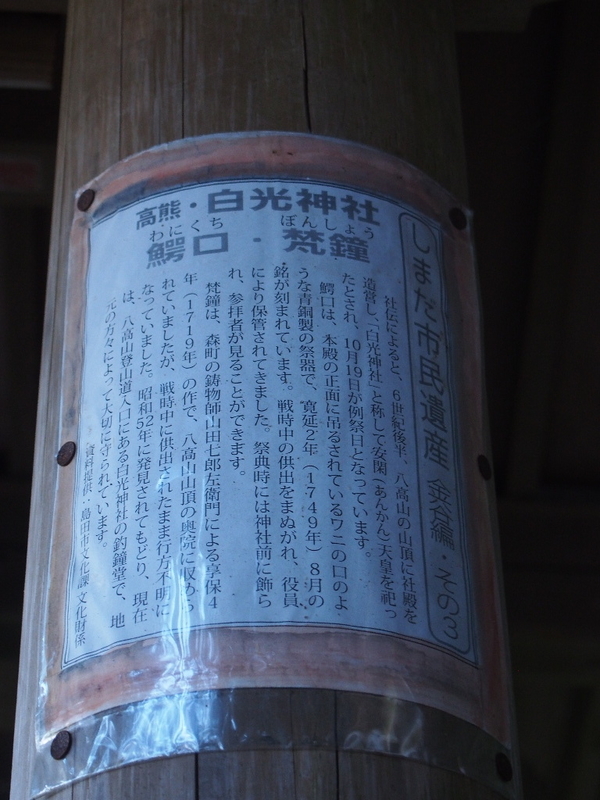 しまだ市民遺産 金谷編・その3
高熊・白光神社
わにぐち ぼんしょう
鰐口・梵鐘
社伝によると、6世紀後半、八高山の山頂に社殿を
造営し、「白光神社」と称して安閑(あんかん)天皇を祀っ
たとされ、10月19日が例祭日となっています。
鰐口は、本殿の正面に吊るされているワニの口のよ
うな青銅製の祭器で、寛延2年(1749年)8月の
銘が刻まれています。戦時中の供出をまぬがれ、役員
により保管されてきました。祭典時には神社前に飾ら
れ、参拝者が見ることができます。
梵鐘は、森町の鋳物師山田七郎左衛門による享保4
年(1719年)の作で、八高山山頂の奥院に収めら
れていましたが、戦時中に供出されたまま行方不明に
なっていました。昭和52年に発見されてもどり、現在
は、八高山登山道入口にある白光神社の釣鐘堂で、地
元の方々によって大切に守られています。
資料提供・島田市文化課文化財係